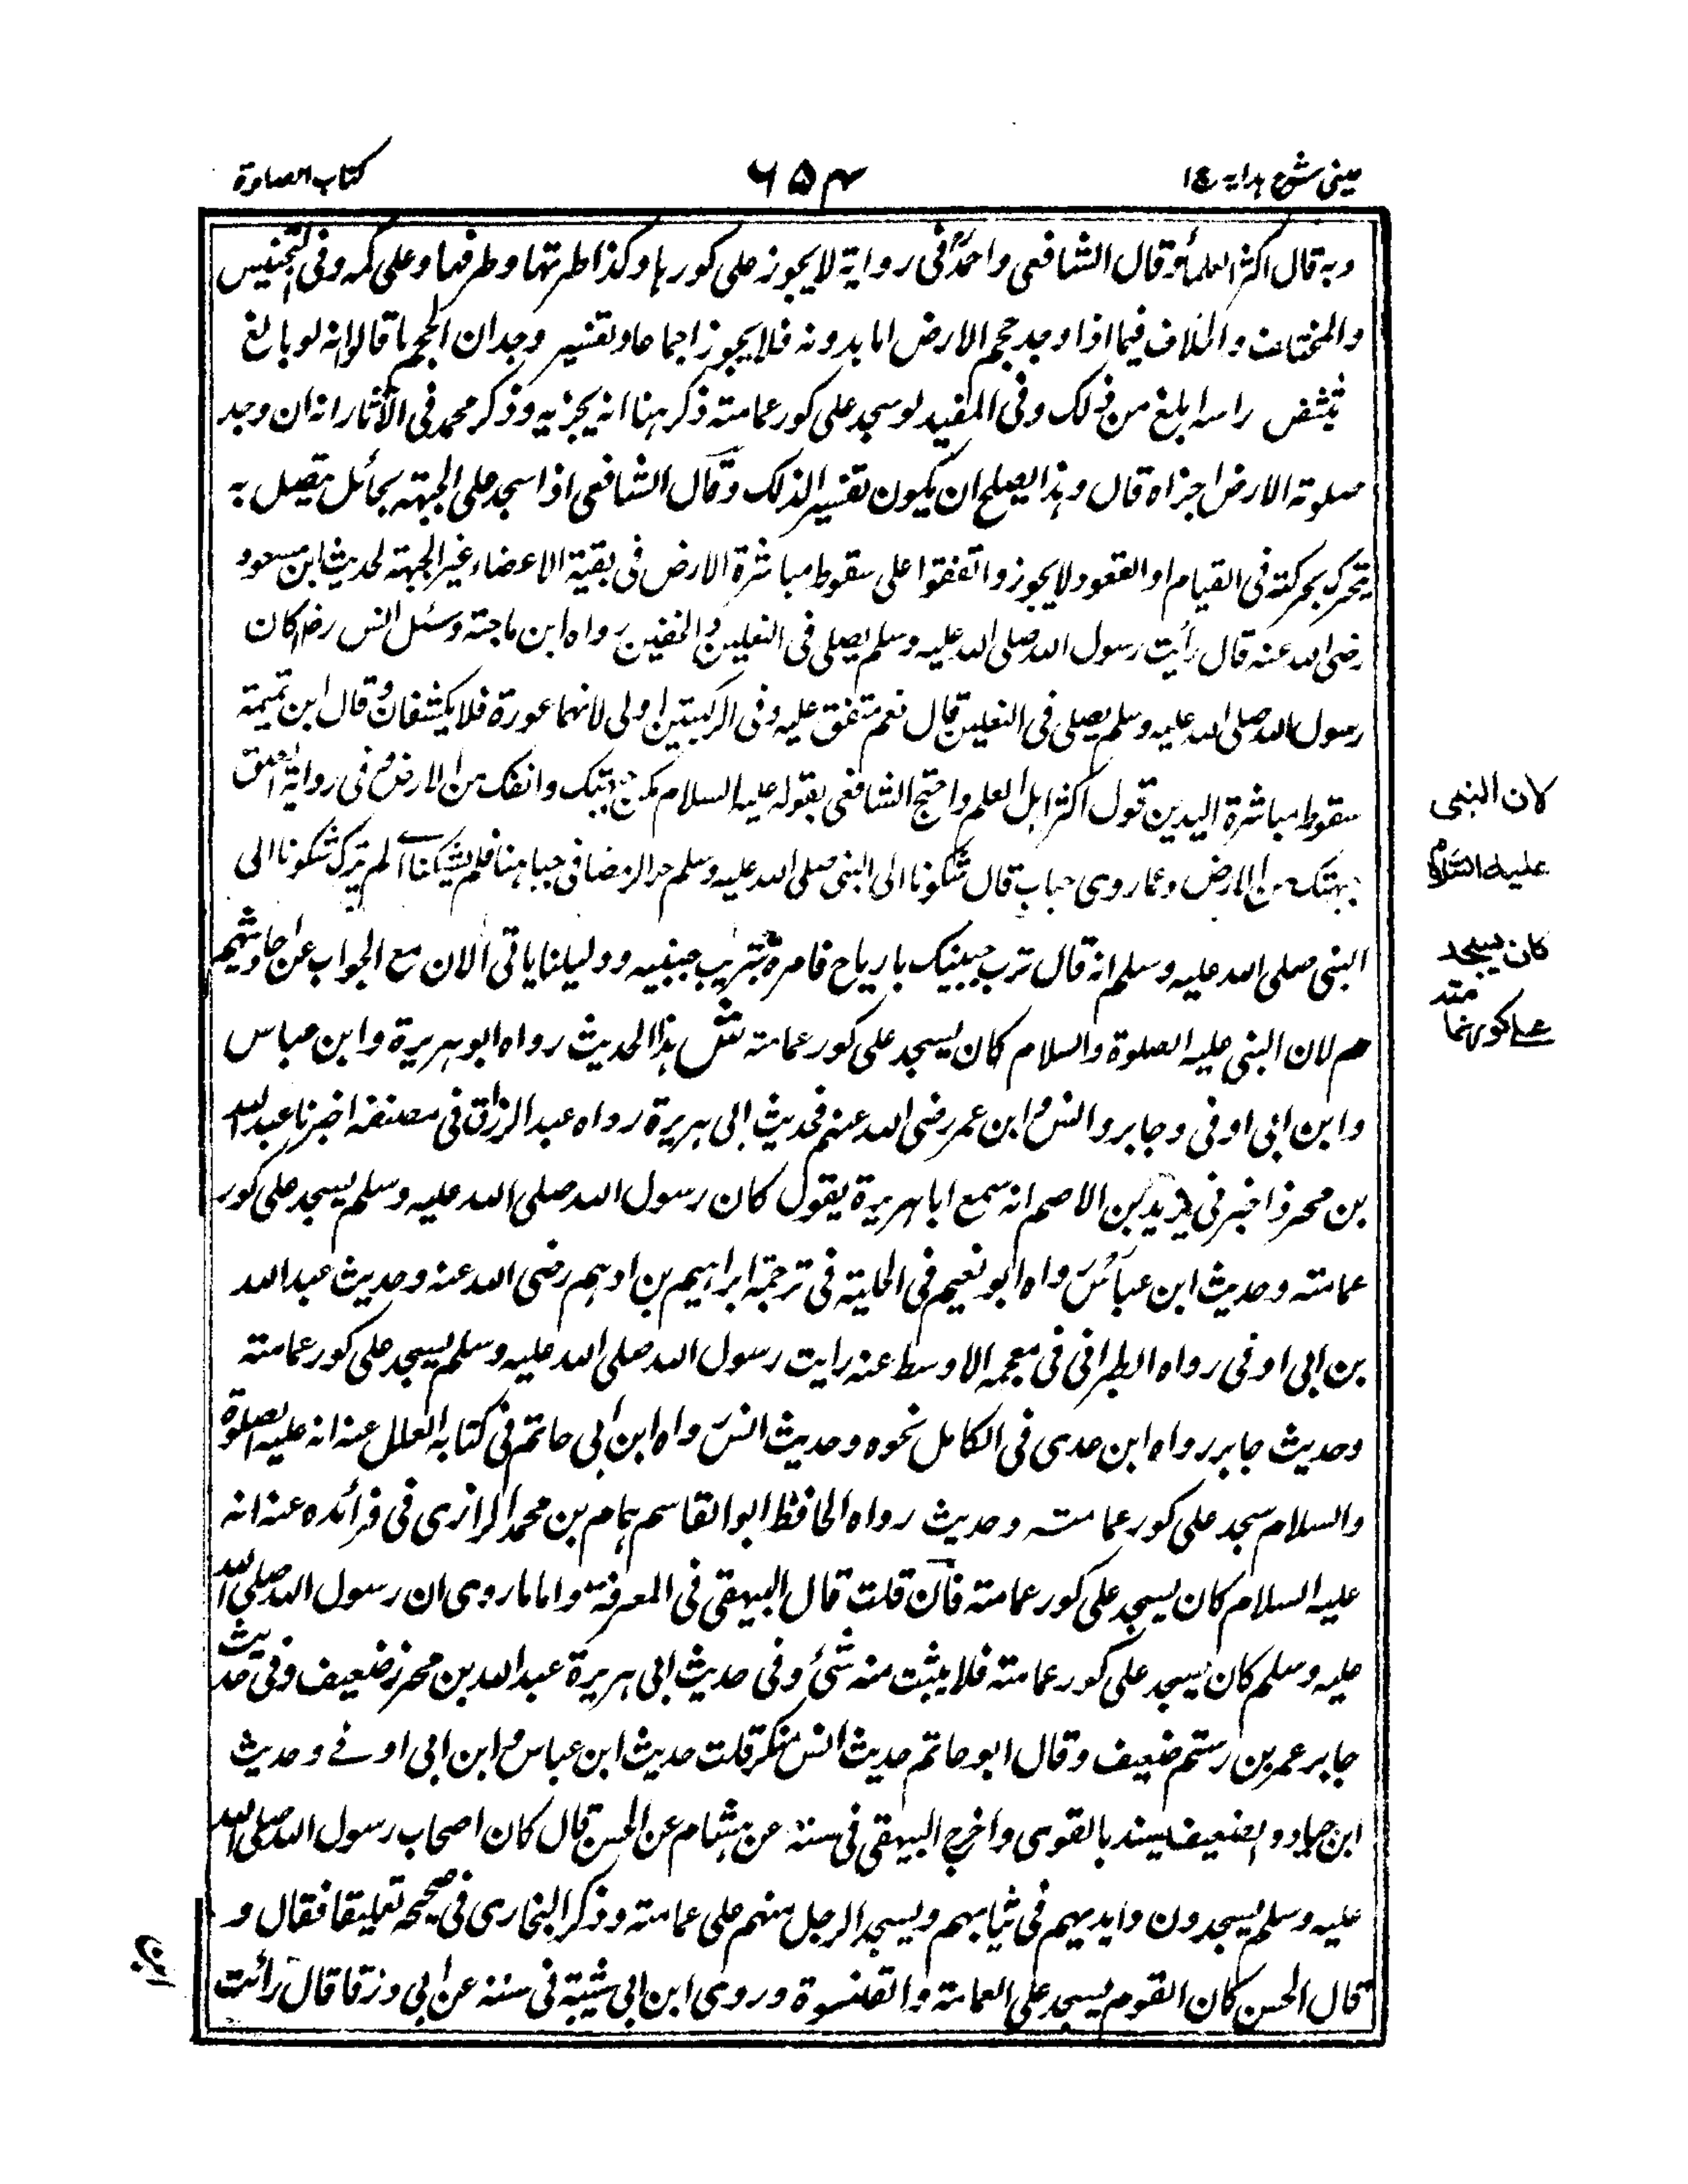 عینی شرح ہدایہ ج١
٦٥٤
کتاب الصلوة
وبه قال اکثر العلماء وقال الشافعی واحمد فی رواية لا یجوز علی کورها وکذا طرتها وطرفها وعلی کمه وفی التجنیس
والمختلف والخلاف فیما اذا وجد حجم الارض اما بدونه فلا یجوز اجماعا وتفسیر وجدان الحجم ما قالوا انه لو بالغ
راسه ابلغ من ذلک وفی المفید لو سجد علی کور عمامته ذکر هنا انه یجزیه وذکر محمد فی الآثار انه ان وجد
صلوته الارض اجزاه قال وهذا یصلح ان یکون تفسیرا لذلک وقال الشافعی اذا سجد علی الجبهته بحائل متصل به
یتحرک بحرکته فی القیام او القعود لا یجوز واتفقوا علی سقوط مباشرة الارض فی بقیة الاعضاء غیر الجبهته لحدیث ابن مسعود
رضی الله عنه قال رأیت رسول الله صلی الله علیه وسلم یصلی فی النعلین والخفین رواه ابن ماجته وسئل انس رض اکان
رسول الله صلی الله علیه وسلم یصلی فی النعلین قال نعم متفق علیه وفی الرکبتین اولی لانهما عورة فلا یکشفان وقال ابن تیمیته
سقوط مباشرة الیدین قول اکثر اهل العلم واحتج الشافعی بقوله علیه السلام مکن جبهتک وانفک من الارض وفی رواية الصق
جبهتک من الارض وعما روی خباب قال شکونا الی النبی صلی الله علیه وسلم حر الرمضا فی جباهنا فلم یشکنا ای لم یترک شکونا الی
النبی صلی الله علیه وسلم انه قال ترب جبینک یا رباح فامره بتتریب جبینه ودلیلنا یاتی الآن مع الجواب عن احادیثهم
م لان النبی علیه الصلوة والسلام کان یسجد علی کور عمامته ش هذا الحدیث رواه ابو هریرة وابن عباس
وابن ابی اوفی وجابر وانس وابن عمر رضی الله عنهم فحدیث ابی هریرة رواه عبد الرزاق فی مصنفه اخبرنا عبد الله
بن محرز اخبرنی یزید بن الاصم انه سمع ابا هریرة یقول کان رسول الله صلی الله علیه وسلم یسجد علی کور
عمامته وحدیث ابن عباس رواه ابو نعیم فی الحلیته فی ترجمة ابراهیم بن ادهم رضی الله عنه وحدیث عبد الله
بن ابی اوفی رواه الطبرانی فی معجمه الاوسط عنه رایت رسول الله صلی الله علیه وسلم یسجد علی کور عمامته
وحدیث جابر رواه ابن عدی فی الکامل نحوه وحدیث انس رواه ابن ابی حاتم فی کتابه العلل عنه انه علیه الصلوة
والسلام سجد علی کور عمامته وحدیث رواه الحافظ ابو القاسم همام بن محمد الرازی فی فوائده عنه انه
علیه السلام کان یسجد علی کور عمامته فان قلت قال البیهقی فی المعرفة واما ما روی ان رسول الله صلی الله
علیه وسلم کان یسجد علی کور عمامته فلا یثبت منه شئ وفی حدیث ابی هریرة عبد الله بن محرز ضعیف وفی حدیث
جابر عمر بن رستم ضعیف وقال ابو حاتم حدیث انس منکر قلت حدیث ابن عباس وابن ابی اوفی وحدیث
ابن جیاد والضعیف یسند بالقوی واخرج البیهقی فی سننه عن هشام عن الحسن قال کان اصحاب رسول الله صلی الله
علیه وسلم یسجدون وایدیهم فی ثیابهم ویسجد الرجل منهم علی عمامته وذکر البخاری فی صحیحه تعلیقا فقال و
قال الحسن کان القوم یسجد علی العمامته والقلنسوة وروی ابن ابی شیبته فی سننه عن ابی ورقا قال رائت
لان النبی
علیه السلام
کان یسجد
علی کور عمامته